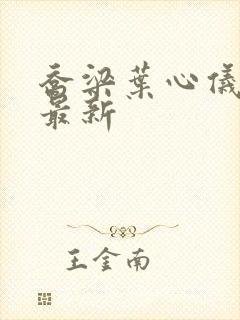 乔梁叶心仪
最新
王金南